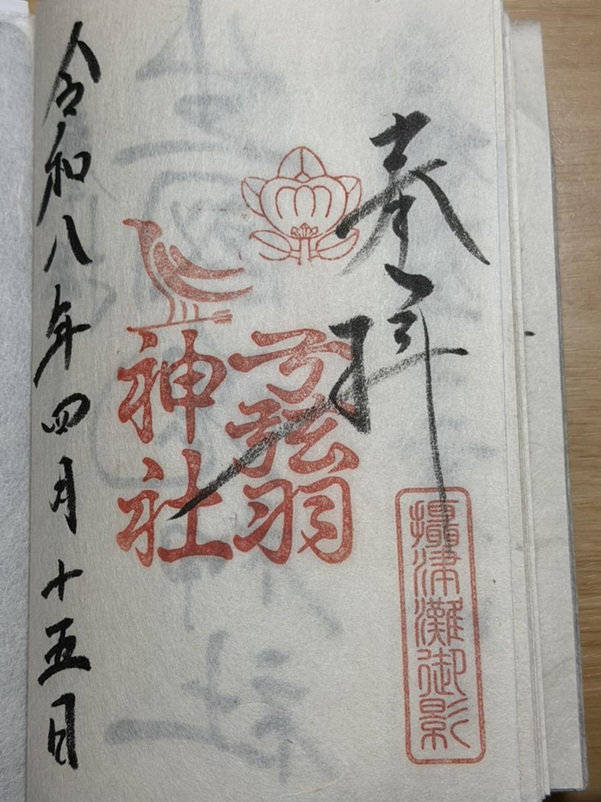 奉拝
攝津灘御影
弓弦羽
神社
令和八年四月十五日